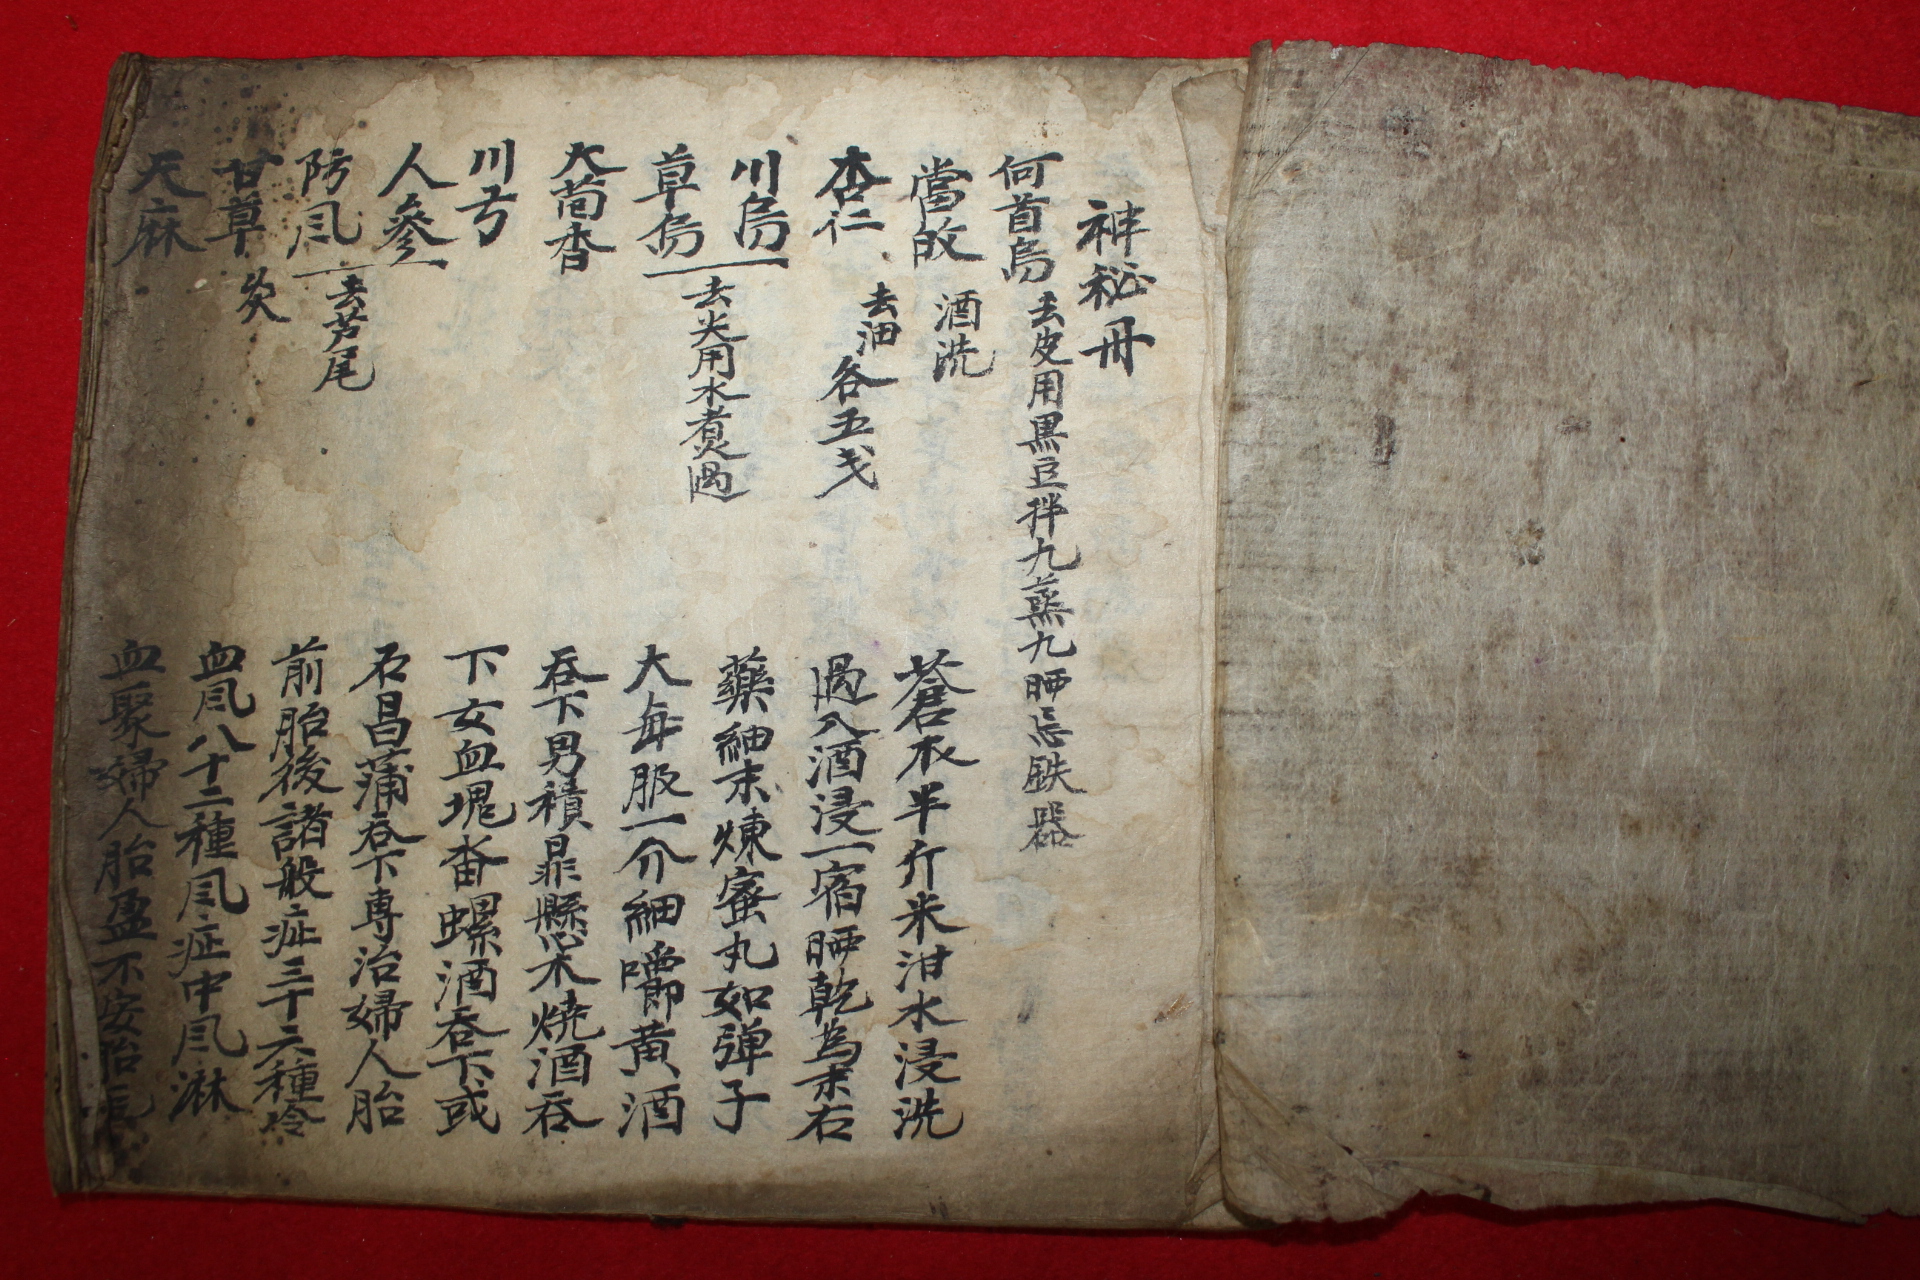 神秘冊
何首烏 去皮用黒豆拌九蒸九晒忌鉄器
當皈 酒洗
杏仁 去油 各五戈
川烏
草烏 去尖用水煮過
大茴香
川芎
人參
防風 去芦尾
甘草 炙
天麻
蒼朮半斤米泔水浸洗
過入酒浸一宿晒乾為末右
藥細末煉蜜丸如弾子
大每服一介細嚼黄酒
吞下男積暴懸木燒酒吞
下女血塊畨螺酒吞下或
石昌蒲吞下專治婦人胎
前胎後諸般症三十六種冷
血風八十二種風症中風淋
血聚婦人胎盈不安胎長